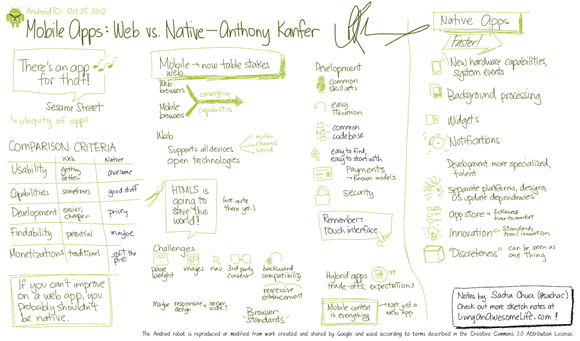 AndroidTO: Oct 25, 2012
Mobile Apps: Web vs. Native—Anthony Kanfer
There's an app
for that!
Sesame Street
→ ubiquity of apps
COMPARISON CRITERIA
Web Native
Usability getting better awesome
Capabilities sometimes good stuff
Development easier, cheaper pricey
Findability potential maybe
Monetizations traditional
If you can't improve
on a web app, you
probably shouldn't
be native.
Mobile → now table stakes
web
Web
browsers
converging
Mobile
browsers
capabilities
Web
Supports all devices
open technologies
multi-
channel
world
HTML5 is
going to
save the
world!
(not quite
there yet...)
Challenges
page
weight
images
nav
3rd party
content
backward
compatibility
regressive
enhancement
Maybe responsive
design + server-
side?
"Browser
Standards"
Development
common
skill sets
easy
iteration
common
codebase
easy to find,
easy to start with
Payments
→ known models
Security
Remember:
touch interface
Hybrid apps
trade-offs, expectations
Mobile content
is everything
→ Not just a
web app
Native Apps
Faster!
New hardware capabilities,
system events
Background processing
Widgets
Notifications
Development more specialized,
talent
Separate platforms, designs,
OS update dependencies
App store +
how to market
Innovation
Standards
from innovation
"Discreteness"
Can be seen as
one thing
Notes by: Sacha Chua (@sachac)
Check out more sketch notes at
LivingAnAwesomeLife.com!
The Android robot is reproduced or modified from work created and shared by Google and used according to terms described in the Creative Commons 3.0 Attribution License.